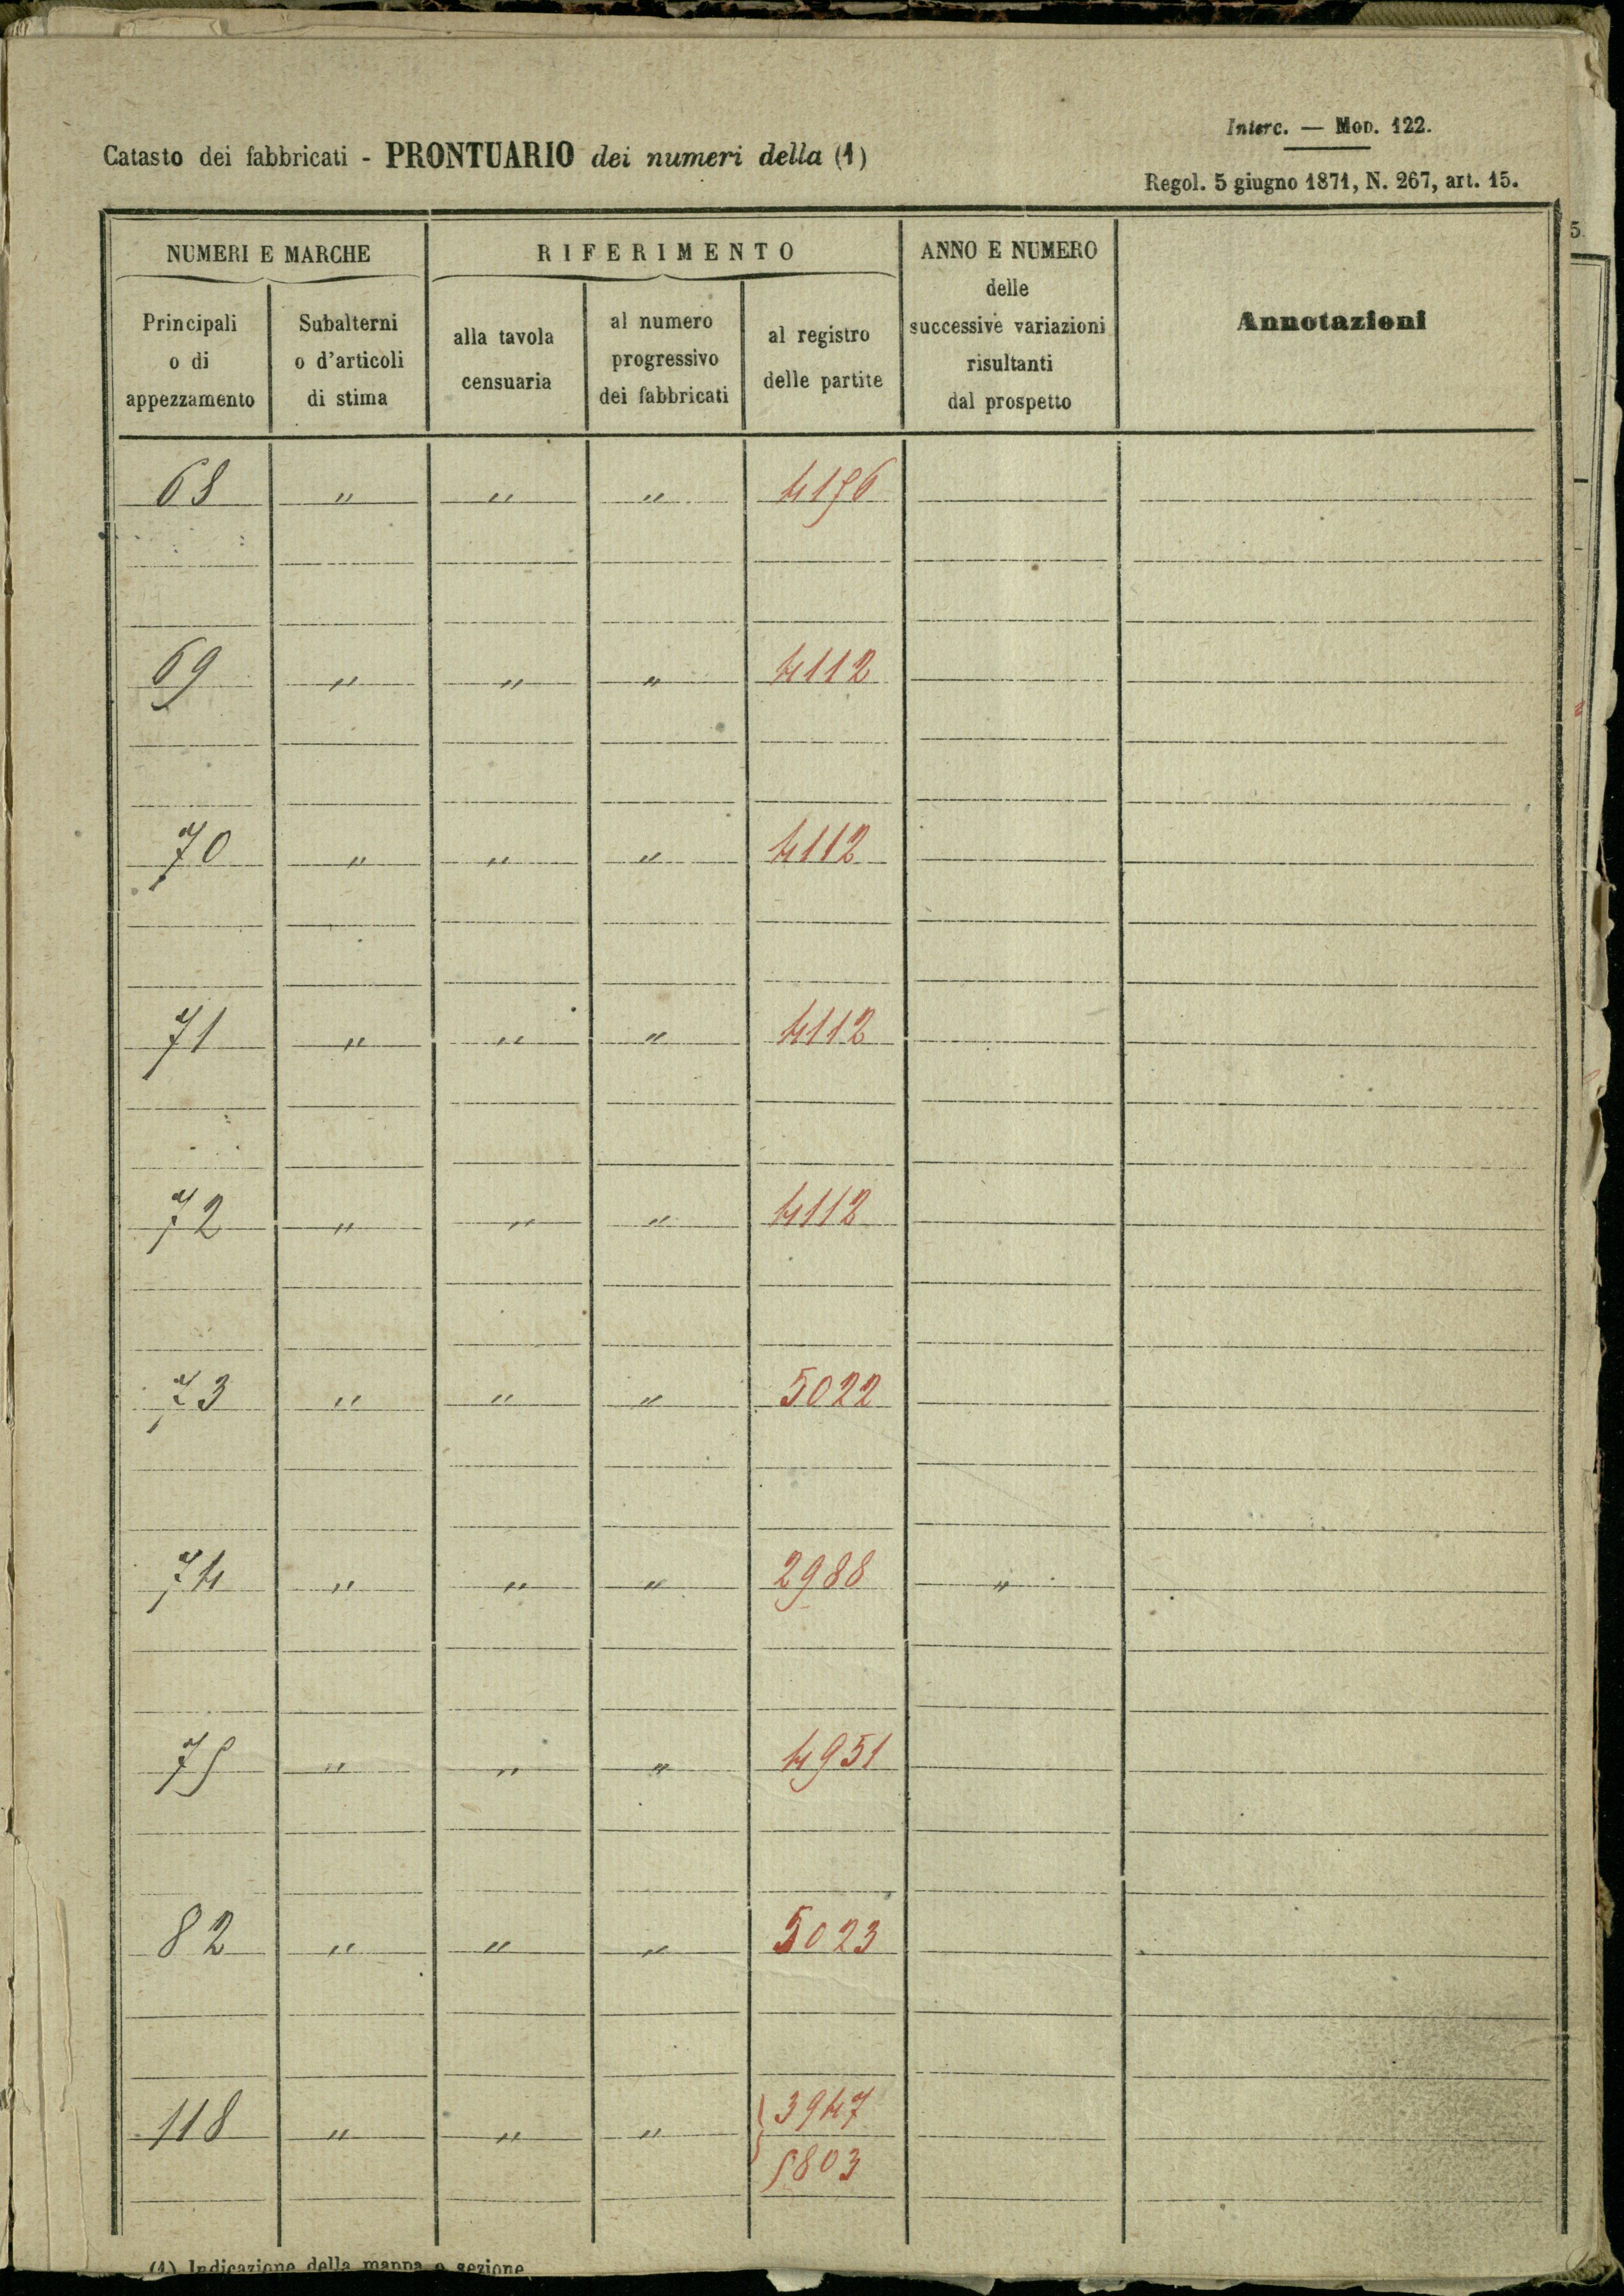 Interc. — Mod. 122.
Catasto dei fabbricati - PRONTUARIO dei numeri della (1)
Regol. 5 giugno 1871, N. 267, art. 15.
NUMERI E MARCHE
Principali
o di
appezzamento
Subalterni
o d'articoli
di stima
RIFERIMENTO
alla tavola
censuaria
al numero
progressivo
dei fabbricati
al registro
delle partite
ANNO E NUMERO
delle
successive variazioni
risultanti
dal prospetto
Annotazioni
68 " " " 4156
69 " " " 4112
70 " " " 4112
71 " " " 4112
72 " " " 4112
73 " " " 5022
74 " " " 2988 "
75 " " " 4951
82 " " " 5023
118 " " " 3947
5803
(1) Indicazione della mappa o sezione